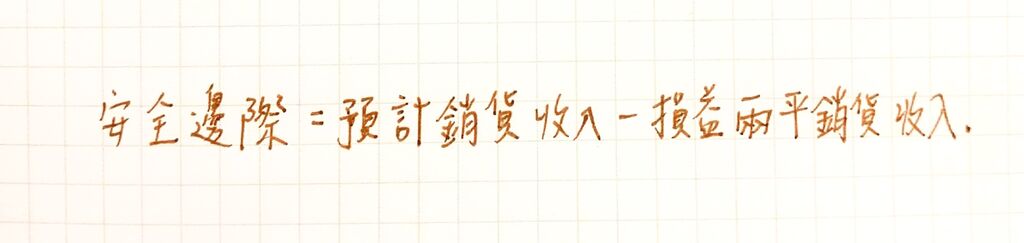 安全邊際=預計銷貨收入-損益兩平銷貨收入.